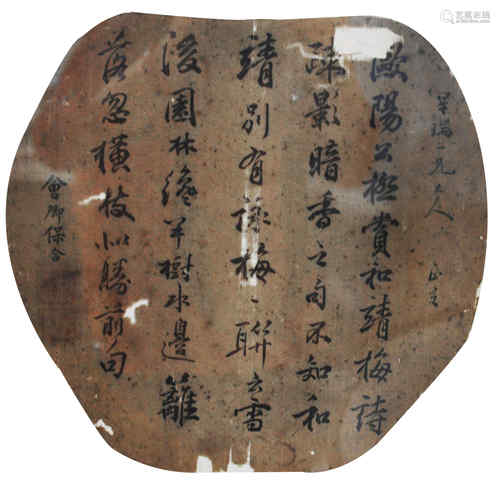 瑞一兄大人
正之
歐陽公極賞和靖梅詩
疎影暗香之句不知和
靖別有詠梅一聯云雪
後園林纔半樹水邊籬
落忽橫枝似勝前句
會卿保合